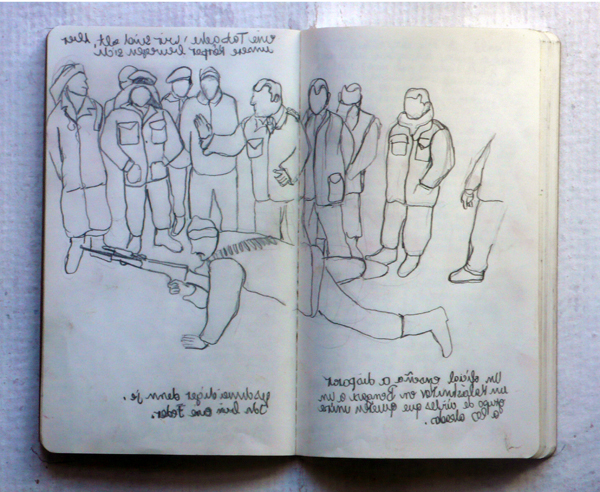 eine Tatsache: wir sind alt, aber
unsere Körper bewegen sich
geschmeidiger denn je.
Ich bin eine Feder.
Un oficial enseña a disparar
un kalashnikov en Bengasi a un
grupo de civiles que quieren unirse
a los alzados.